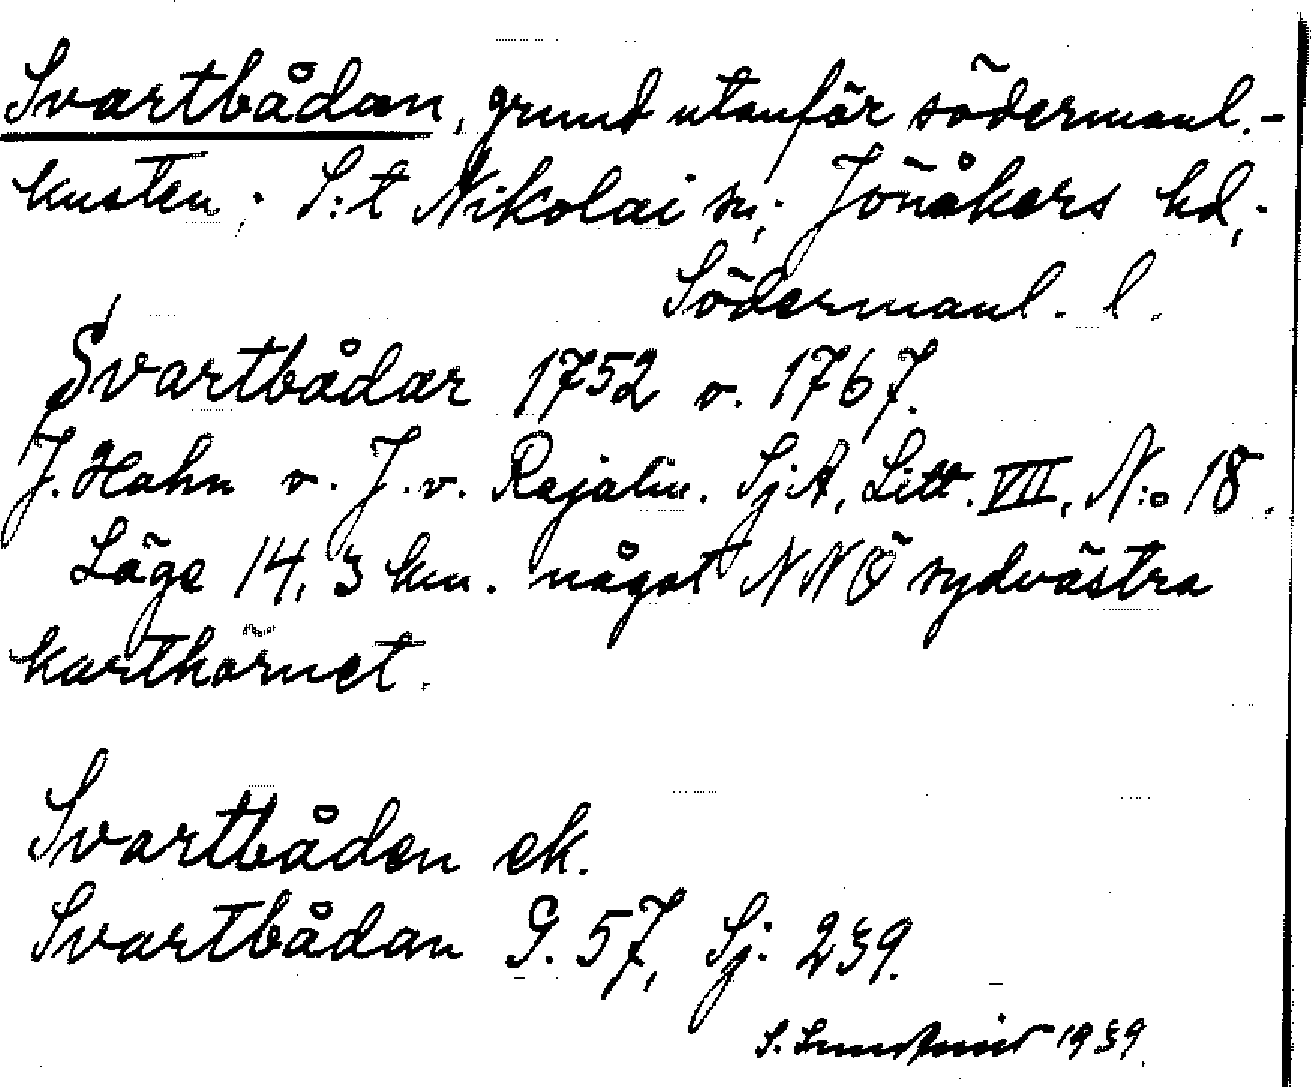 Svartbådan, grund utanför södermanl.-
kusten; S:t Nikolai sn; Jönåkers hd;
Södermanl. l.
Svartbådar 1752 o. 1767.
J. Hahn o. J. v. Rajalin. SjA, Litt. VII, N:o 18.
Läge 14,3 km. något NNÖ sydvästra
karthörnet.
Svartbåden ek.
Svartbådan G. 57, Sj: 239.
S. 1939.